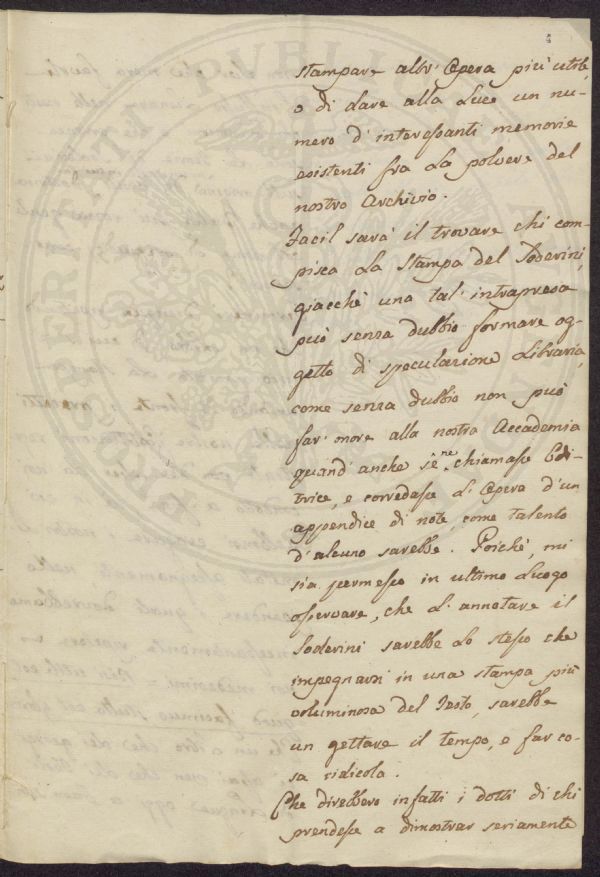 stampare altr' Opera più utile,
o di dare alla Luce un nu-
mero d'interessanti memorie
esistenti fra La polvere del
nostro Archivio.
Facil sarà il trovare chi com-
pisca La Stampa del Soderini,
giacchè una tal' intrapresa
può senza dubbio formare og-
getto di speculazione Libraria,
come senza dubbio non può
far' onore alla nostra Accademia
quand'anche se ne chiamasse Edi-
trice, e corredasse L'Opera d'un
appendice di note, come talento
d'alcuno sarebbe. Poichè, mi
sia permesso in ultimo Luogo
osservare, che L'annotare il
Soderini sarebbe Lo stesso che
impegnarsi in una stampa più
voluminosa del Testo, sarebbe
un gettare il tempo, e far co-
sa ridicola.
Che direbbero infatti i dotti di chi
prendesse a dimostrar seriamente